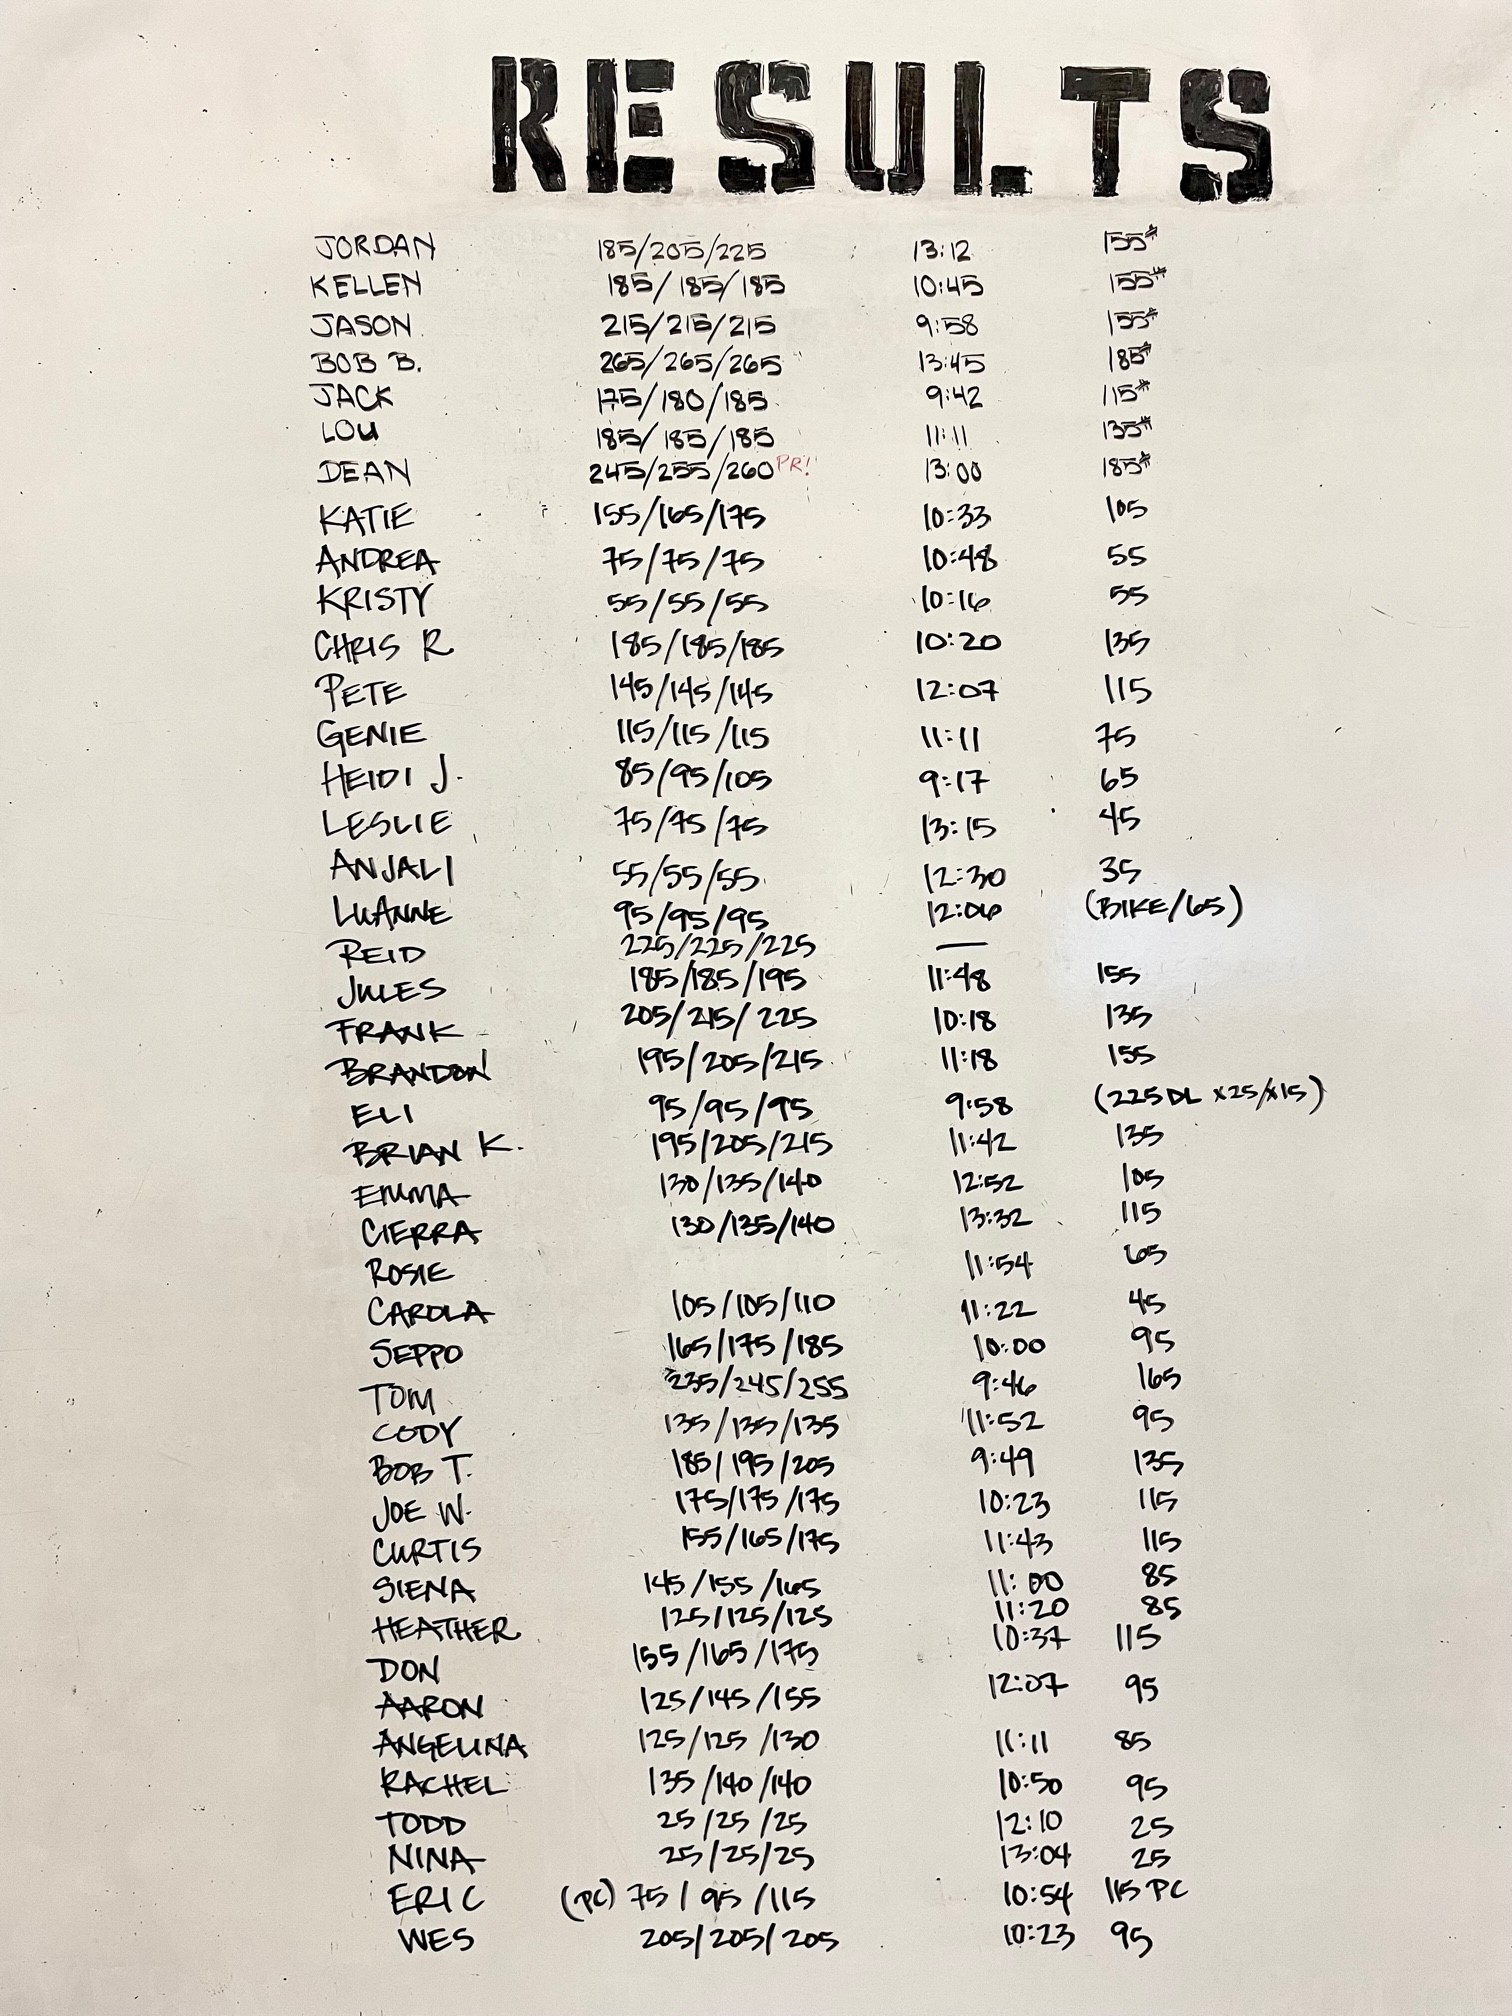 RESULTS
JORDAN 185/205/225 13:12 155#
KELLEN 185/185/185 10:45 155#
JASON 215/215/215 9:58 155#
BOB B. 265/265/265 13:45 185#
JACK 175/180/185 9:42 115#
LOU 185/185/185 11:11 135#
DEAN 245/255/260 PR! 13:00 185#
KATIE 155/165/175 10:33 105
ANDREA 75/75/75 10:48 55
KRISTY 55/55/55 10:16 55
CHRIS R 185/185/185 10:20 135
PETE 145/145/145 12:07 115
GENIE 115/115/115 11:11 75
HEIDI J. 85/95/105 9:17 65
LESLIE 75/75/75 13:15 45
ANJALI 55/55/55 12:30 35
LUANNE 95/95/95 12:06 (BIKE/65)
REID 225/225/225 —
JULES 185/185/195 11:48 155
FRANK 205/215/225 10:18 135
BRANDON 195/205/215 11:18 155
ELI 95/95/95 9:58 (225 DL x25/x15)
BRIAN K. 195/205/215 11:42 135
EMMA 130/135/140 12:52 105
CIERRA 130/135/140 13:32 115
ROSIE 11:54 65
CAROLA 105/105/110 11:22 45
SEPPO 165/175/185 10:00 95
TOM 235/245/255 9:46 165
CODY 135/135/135 11:52 95
BOB T. 185/195/205 9:49 135
JOE W. 175/175/175 10:23 115
CURTIS 155/165/175 11:43 115
SIENA 145/155/165 11:00 85
HEATHER 125/125/125 11:20 85
DON 155/165/175 10:37 115
AARON 125/145/155 12:07 95
ANGELINA 125/125/130 11:11 85
RACHEL 135/140/140 10:50 95
TODD 25/25/25 12:10 25
NINA 25/25/25 13:04 25
ERIC (PC) 75/95/115 10:54 115 PC
WES 205/205/205 10:23 95